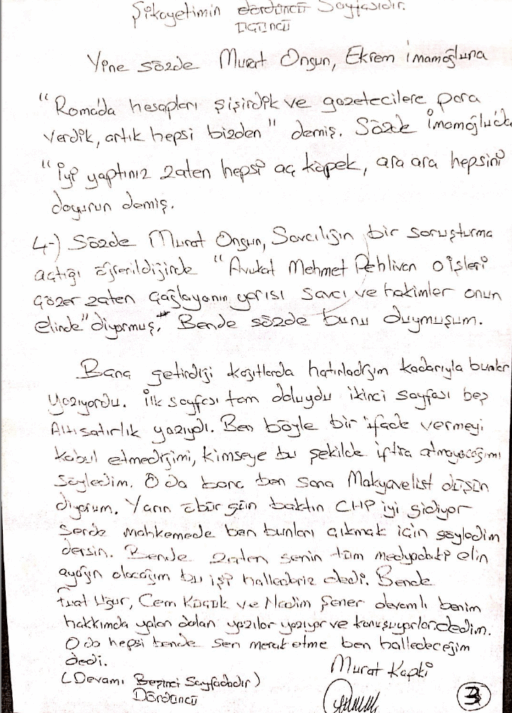 Şikayetimin dördüncü Sayfasıdır.
Üçüncü
Yine sözde Murat Ongun, Ekrem İmamoğluna
"Romada hesapları şişirdik ve gazetecilere para
verdik, artık hepsi bizden" demiş. Sözde İmamoğluda
"İyi yaptınız zaten hepsi aç köpek, ara ara hepsini
doyurun demiş.
4-) Sözde Murat Ongun, Savcılığın bir soruşturma
açtığı öğrenildiğinde "Avukat Mehmet Pehlivan o işleri
çözer zaten Çağlayanın yarısı savcı ve hakimler onun
elinde" diyormuş. Bende sözde bunu duymuşum.
Bana getirdiği kağıtlarda hatırladığım kadarıyla bunlar
yazıyordu. İlk sayfası tam doluydu ikinci sayfası beş
Altı satırlık yazıydı. Ben böyle bir ifade vermeyi
kabul etmediğimi, kimseye bu şekilde iftira atmayacağımı
söyledim. O da bana ben sana Makyavelist düşün
diyorum. Yarın öbür gün baktın CHP iyi gidiyor
sende mahkemede ben bunları çıkmak için söyledim
dersin. Bende zaten senin tüm medyadaki elin
ayağın olacağım bu işi hallederiz dedi. Bende
Fuat Uğur, Cem Küçük ve Nedim Şener devamlı benim
hakkımda yalan dolan yazılar yazıyor ve konuşuyorlar dedim.
O da hepsi bende sen merak etme ben halledeceğim
dedi.
Murat Kapki
(Devamı Beşinci Sayfadadır)
Dördüncü
3